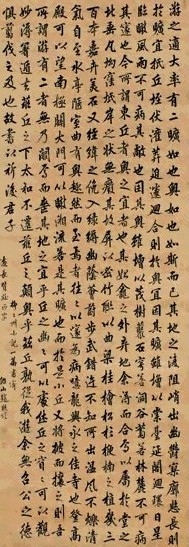 游之適大率有二曠如也奧如也如斯而已其地之凌阻峭出幽鬱寥廓悠長則
於曠宜抵丘垤伏灌莽迫遽迴合則於奧宜因其曠雖增以崇臺延閣迴環日星
臨瞰風雨不可病其敞也因其奧雖增以茂樹叢石穹若洞谷蓊若林麓不可病
其邃也今所謂東丘者奧之宜者也其始龕之外棄地余得而合焉以屬於堂之
北陲凡坳窪坻岸之狀無廢其故屏以密竹聯以曲梁桂檜松杉楩柟之植幾三
百本嘉卉美石又經緯之俛入綠縟幽蔭薈蔚步武錯迕不知所出溫風不爍清
氣自至水亭陿室曲有奧趣然而至焉者往往以邃為病噫龍興永之佳寺也登高
殿可以望南極闢大門可以瞰湘流若是其曠也而於是小丘又將披而攘之則吾
所謂游有二者無乃闕焉而喪其地之宜乎丘之幽幽可以處休丘之窅窅可以觀
妙溽暑遁去茲丘之下大和不遷茲丘之巔奧乎茲丘孰從我游余無召公之德
懼翦伐之及也故書以祈後君子